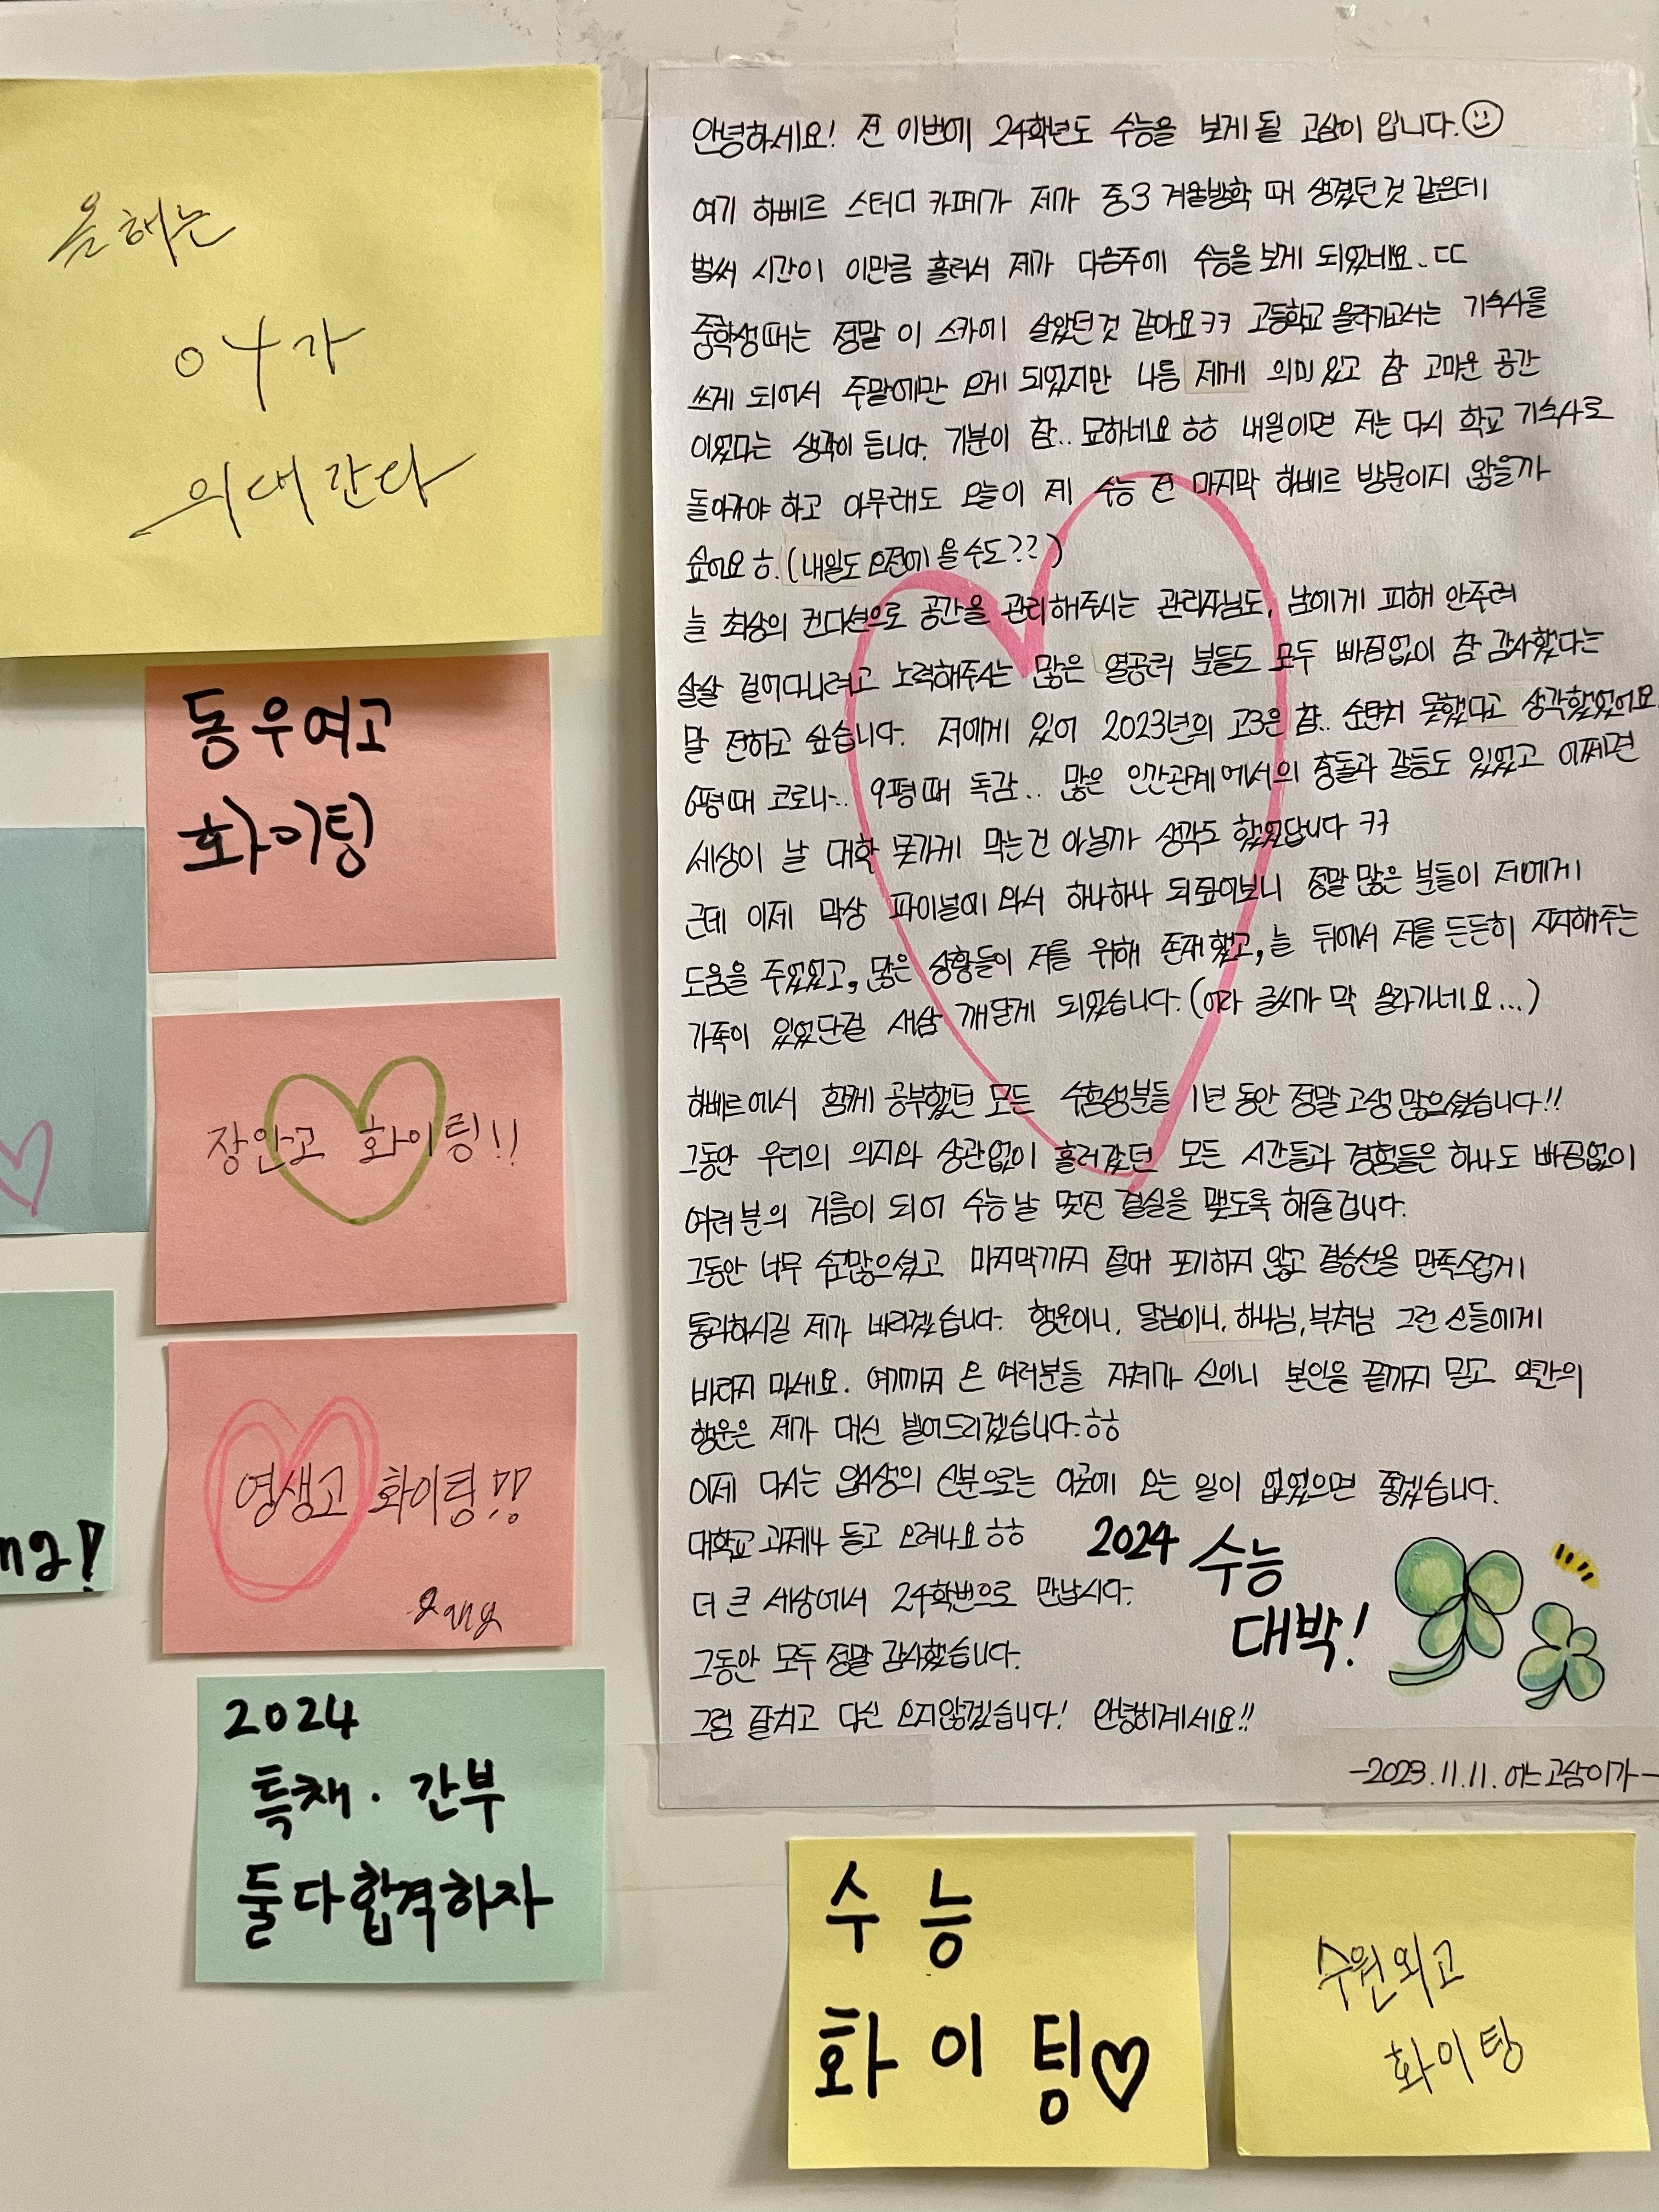 올해는
여가
의대간다
동우여고
화이팅
장안고 화이팅!!
영생고 화이팅!!
2024
특채. 간부
둘다합격하자
ng!
안녕하세요! 전 이번에 24학년도 수능을 보게 될 고삼이 입니다.
여기 하베르 스터디 카페가 제가 중3 겨울방학 때 생겼던 것 같은데
벌써 시간이 이만큼 흘러서 제가 다음주에 수능을 보게 되었네요..ㄷㄷ
중학생때는 정말 이 스카에 살았던것 같아요ㅋㅋ 고등학교 올라가고서는 기숙사를
쓰게 되어서 주말에만 오게 되었지만 나름 제게 의미 있고 참 고마운 공간
이었다는 생각이 듭니다. 기분이 참.. 묘하네요 ㅎㅎ 내일이면 저는 다시 학교 기숙사로
돌아가야 하고 아무래도 오늘이 제 수능 전 마지막 하베르 방문이지 않을까
싶어요 ㅎ.(내일도 오전에 올 수도??)
늘 최상의 컨디션으로 공간을 관리해주시는 관리자님도, 남에게 피해 안주려
살살 걸어다니려고 노력해주시는 많은 열공러 분들도 모두 빠짐없이 참 감사했다는
말 전하고 싶습니다. 저에게 있어 2023년의 고3은 참.. 순탄치 못했다고 생각했었어요
6평때 코로나.. 9평때 독감.. 많은 인간관계에서의 충돌과 갈등도 있었고 어쩌면
세상이 날 대학 못가게 막는건 아닐까 생각도 했었답니다 ㅋㅋ
근데 이제 막상 파이널에 와서 하나하나 되짚어보니 정말 많은 분들이 저에게
도움을 주었었고, 많은 상황들이 저를 위해 존재했고, 늘 뒤에서 저를 든든히 지지해주는
가족이 있었단걸 새삼 깨닫게 되었습니다.(어라 글씨가 막 올라가네요...)
하베르에서 함께 공부했던 모든 수험생분들 1년 동안 정말 고생 많으셨습니다!!
그동안 우리의 의지와 상관없이 흘러갔던 모든 시간들과 경험들은 하나도 빠짐없이
여러분의 거름이 되어 수능날 멋진 결실을 맺도록 해줄겁니다.
그동안 너무 수고많으셨고 마지막까지 절대 포기하지 않고 결승선을 만족스럽게
통과하시길 제가 바라겠습니다. 행운이니, 달님이니, 하나님, 부처님 그런 신들에게
바라지 마세요. 여기까지 온 여러분들 자체가 신이니 본인을 끝까지 믿고 약간의
행운은 제가 대신 빌어드리겠습니다.ㅎㅎ
이제 다시는 입시생의 신분으로는 이곳에 오는 일이 없었으면 좋겠습니다.
대학교 과제나 들고 오려나요 ㅎㅎ
더 큰 세상에서 24학번으로 만납시다.
그동안 모두 정말 감사했습니다.
그럼 잘치고 다신 오지않겠습니다! 안녕히계세요!!
2024 수능
대박!
-2023.11.11. 어느고삼이가-
수능
화이팅♡
수원외고
화이팅